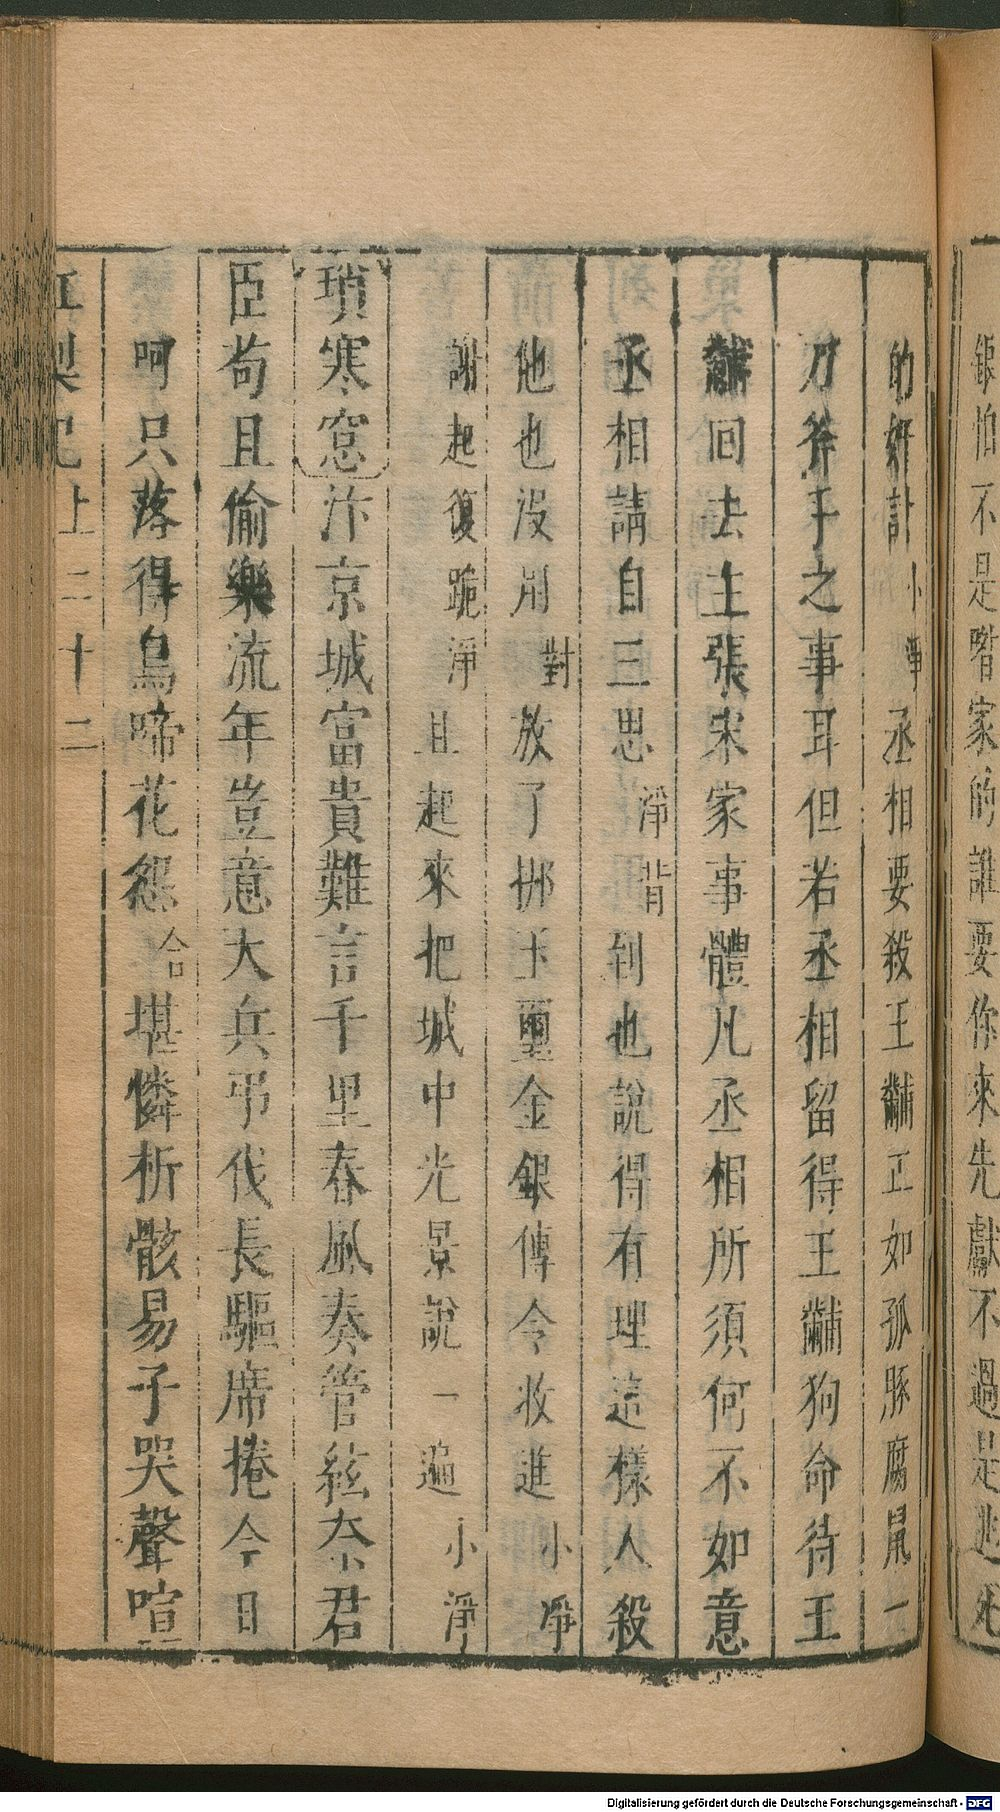 銀怕不是喈家的誰要你來先獻不過是逃死
的奸計小淨丞相要殺王黼正如孤豚腐鼠一
刀斧手之事耳但若丞相留得王黼狗命待王
黼回去主張宋家事體凡丞相所須何不如意
丞相請自三思淨背到也說得有理這樣人殺
他也沒用對放了梆玉璽金銀傳令收進小淨
謝起復跪淨且起來把城中光景說一遍小淨
瑣寒窓汴京城富貴難言千里春風奏管絃奈君
臣苟且偷樂流年豈意大兵弔伐長驅席捲今日
呵只落得鳥啼花怨合堪憐析骸易子哭聲喧
紅梨記上二十二
Digitalisierung gefördert durch die Deutsche Forschungsgemeinschaft - DFG